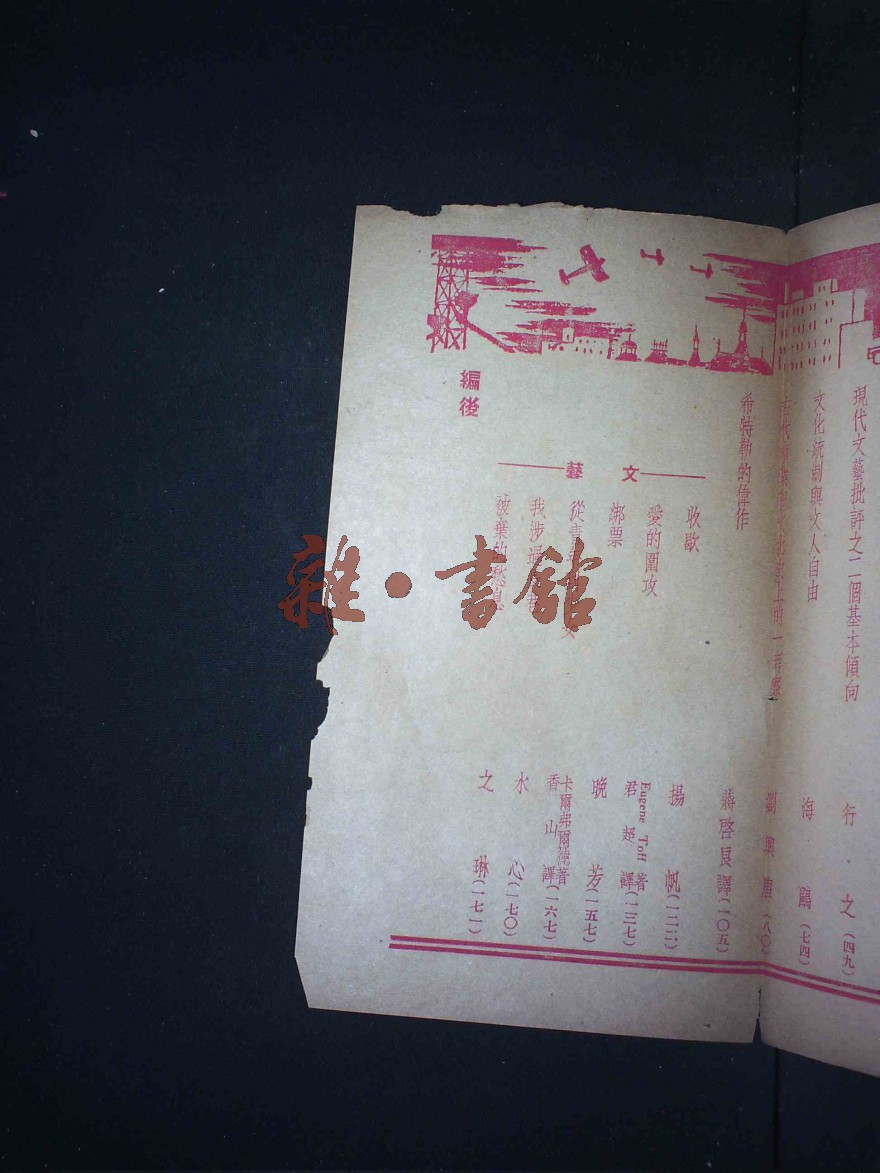 現代文藝批評之二個基本傾向 行之(四九)
文化統制與文人自由 海鷗(七四)
上的一考察 劉興唐(八〇)
希特勒的偉作 蔣啓良譯(一〇五)
文藝
收歇 揚帆(一二二)
愛的圍攻 Eugene Toff著 君超譯(一三七)
綁票 晚芳(一五七)
從 卡爾弗爾德著 香山譯(一六七)
我涉過 水心(一七〇)
被棄的 息 之琳(一七一)
編後
雜·書館